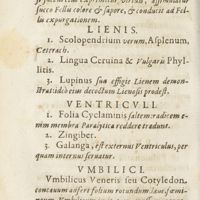 succo Fellis colore & sapore, & conducit ad Fel-
lis expurgationem.
LIENIS.
1. Scolopendrium verum, Asplenum,
Ceterach.
2. Lingua Ceruina & Vulgaris Phyl-
litis.
3. Lupinus sua effigie Lienem demon-
strat: ideò eius decoctum Lienosis prodest.
VENTRICVLI.
1. Folia Cyclaminis saltem: radix enim
membra Paralytica reddere traditur.
2. Zingiber.
3. Galanga, est externus Ventriculus, per-
quam internus seruatur.
VMBILICI.
Vmbilicus Veneris seu Cotyledon,
concauum adfert folium rotundum